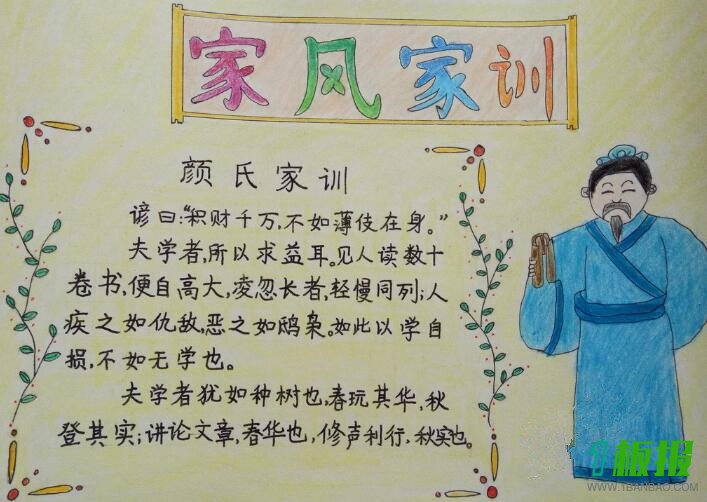 家风家训
颜氏家训
谚曰:“积财千万,不如薄伎在身。”
夫学者,所以求益耳。见人读数十
卷书,便自高大,凌忽长者,轻慢同列;人
疾之如仇敌,恶之如鸱枭。如此以学自
损,不如无学也。
夫学者犹如种树也,春玩其华,秋
登其实;讲论文章,春华也,修声利行,秋实也。
板报
WWW.1BANBAO.COM